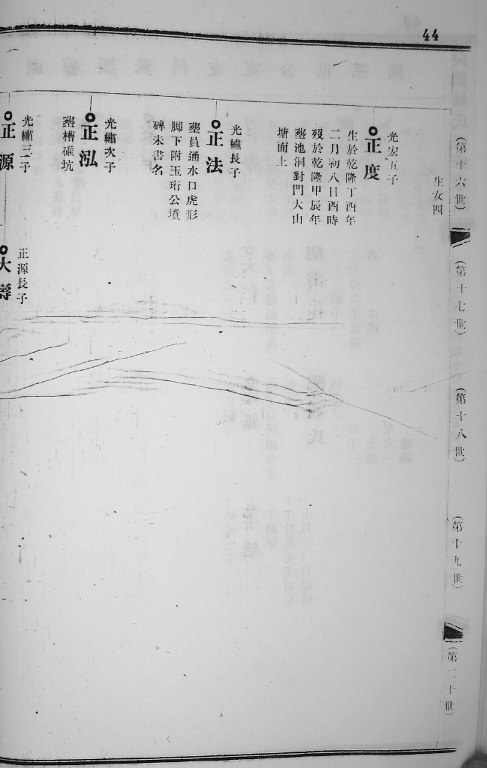 44
(第十六世)
(第十七世)
(第十八世)
(第十九世)
(第二十世)
生女四
光宏五子
正度
生於乾隆丁酉年
二月初八日酉時
歿於乾隆甲辰年
塟池洞對門大山
塘面上
光繡長子
正法
塟員通水口虎形
脚下附玉珩公墳
碑未書名
光繡次子
正泓
塟槽碓坑
光繡三子
正源
正源長子
大壽